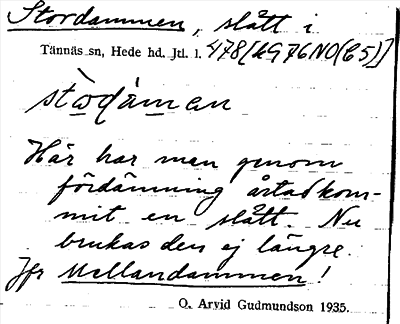 Stordammen, slått i
Tännäs sn, Hede hd. Jtl. l. 478[kG76NO(C5)]
stὼdámαn
Här har man genom
fördämning åstadkom-
mit en slått. Nu
brukas den ej längre.
Jfr Mellandammen!
O. Arvid Gudmundson 1935.